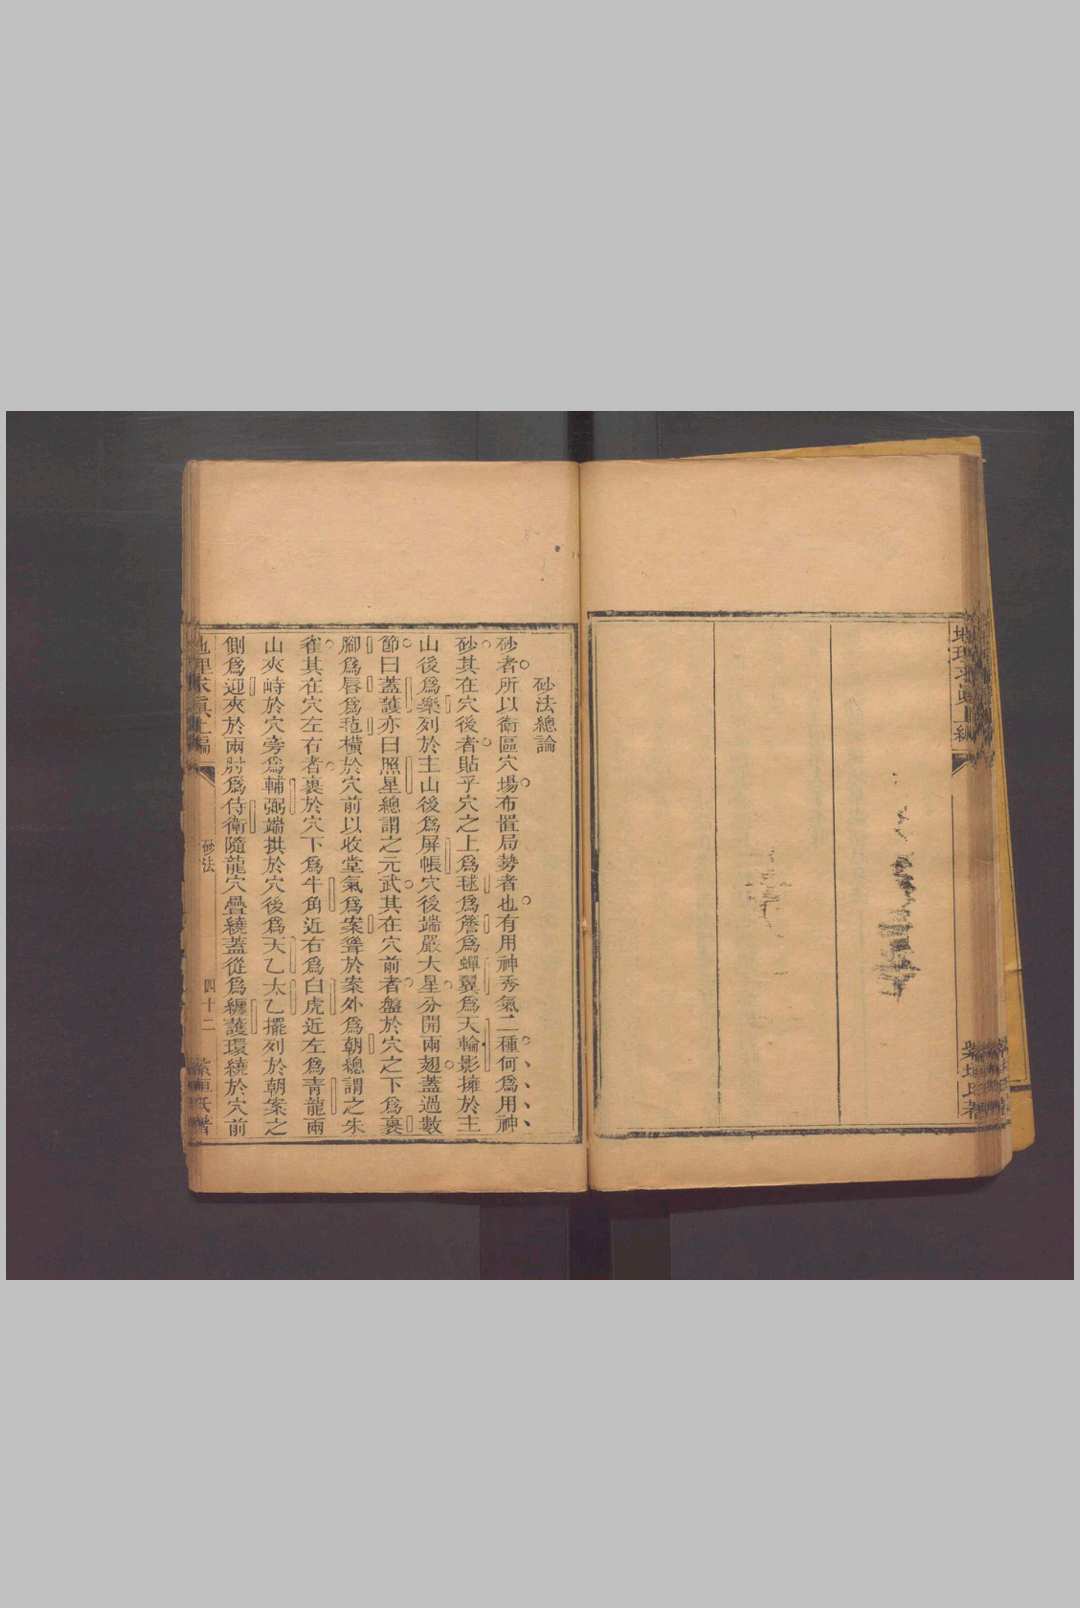 上
砂法總論
砂者所以衛區穴場布置局勢者也有用神秀氣二種何爲用神
砂其在穴後者貼乎穴之上爲毬爲簷爲蟬翼爲天輪影擁於主
山後爲樂列於主山後爲屏帳穴後端嚴大星分開兩翅蓋過數
節曰蓋護亦曰照星總謂之元武其在穴前者盤於穴之下爲裹
腳爲唇爲氈橫於穴前以收堂氣爲案聳於案外爲朝總謂之朱
雀其在穴左右者裹於穴下爲牛角近右爲白虎近左爲青龍兩
山夾峙於穴旁爲輔弼端拱於穴後爲天乙太乙擺列於朝案之
側爲迎夾於兩肘爲侍衛隨龍穴疊繞蓋從爲纏護環繞於穴前
地理求眞上編 砂法 四十二